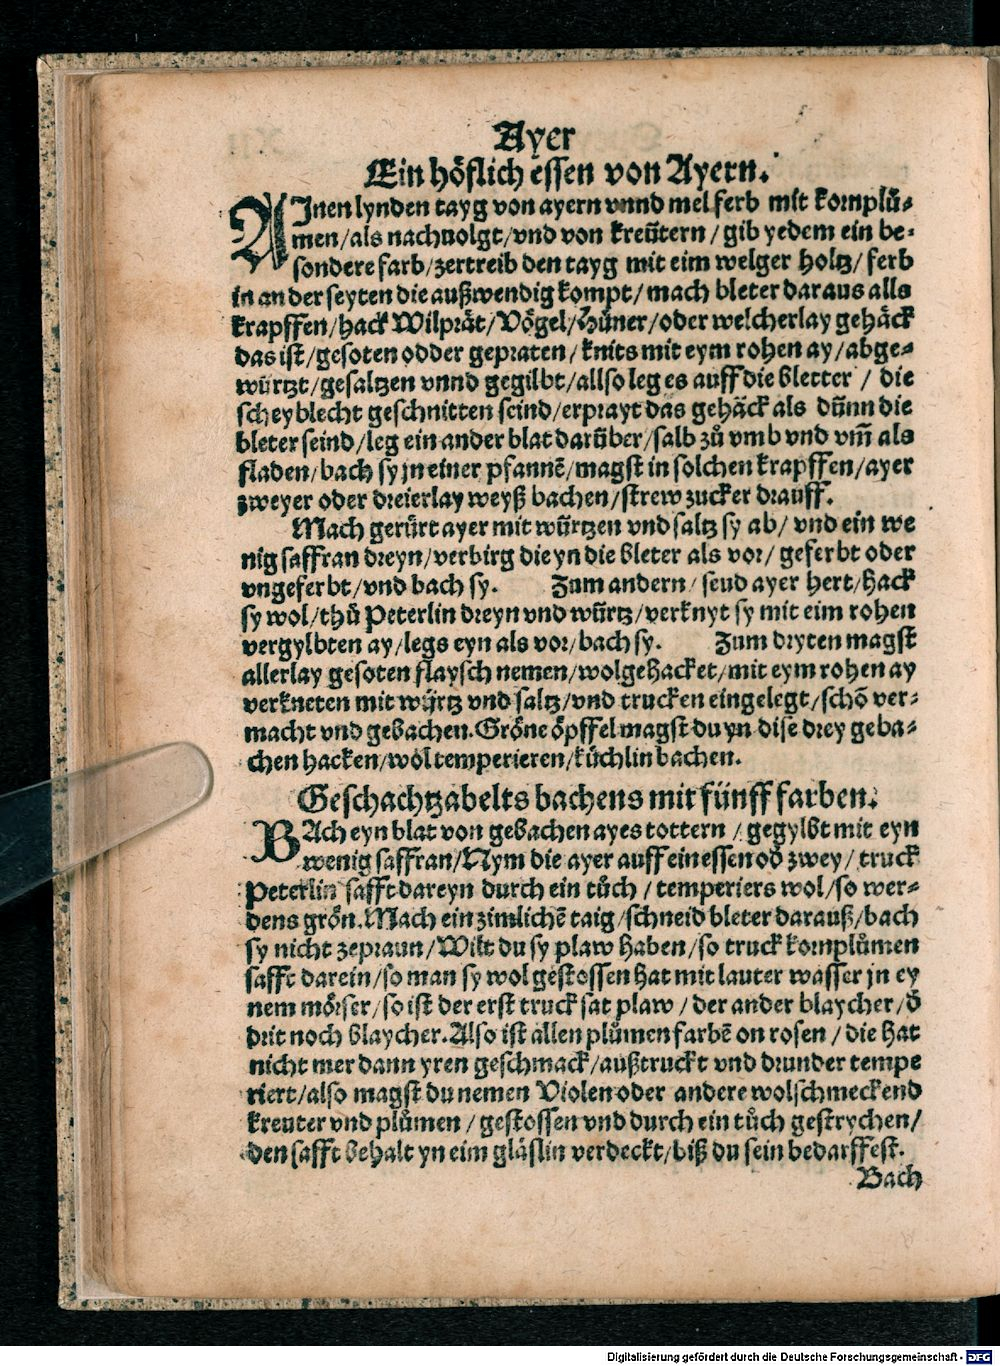 Ayer
Ein höflich essen von Ayern.
AJnen lynden tayg von ayern vnnd mel ferb mit kornplů-
men/als nachuolgt/vnd von kreütern/gib yedem ein be-
sondere farb/zertreib den tayg mit eim welger holtz/ferb
in an der seyten die außwendig kompt/mach bleter daraus alls
krapffen/hack Wilprät/Vögel/Hüner/oder welcherlay gehäck
das ist/gesoten odder gepraten/knits mit eym rohen ay/abge-
würtzt/gesaltzen vnnd gegilbt/allso leg es auff die bletter/die
scheyblecht geschnitten seind/erprayt das gehäck als dünn die
bleter seind/leg ein ander blat darüber/salb zů vmb vnd vm̃ als
fladen/bach sy jn einer pfannē/magst in solchen krapffen/ayer
zweyer oder dreierlay weyß bachen/strew zucker drauff.
Mach gerürt ayer mit würtzen vnd saltz sy ab/vnd ein we
nig saffran dreyn/verbirg die yn die bleter als vor/geferbt oder
vngeferbt/vnd bach sy. Zum andern/seud ayer hert/hack
sy wol/thů Peterlin dreyn vnd würtz/verknyt sy mit eim rohen
vergylbten ay/legs eyn als vor/bach sy. Zum dryten magst
allerlay gesoten flaysch nemen/wolgehacket/mit eym rohen ay
verkneten mit würtz vnd saltz/vnd trucken eingelegt/schō ver-
macht vnd gebachen. Gröne öpffel magst du yn dise drey geba-
chen hacken/wol temperieren/küchlin bachen.
Geschachtzabelts bachens mit fünff farben.
BAch eyn blat von gebachen ayes tottern/gegylbt mit eyn
wenig saffran/Nym die ayer auff ein essen od̄ zwey/truck
Peterlin safft dareyn durch ein tůch/temperiers wol/so wer-
dens grön. Mach ein zimlichē taig/schneid bleter darauß/bach
sy nicht zepraun/Wilt du sy plaw haben/so truck kornplůmen
safft darein/so man sy wol gestossen hat mit lauter wasser jn ey
nem mörser/so ist der erst truck sat plaw/der ander blaycher/d̄
drit noch blaycher. Also ist allen plůmen farbē on rosen/die hat
nicht mer dann yren geschmack/außtruckt vnd drunder tempe
riert/also magst du nemen Violen oder andere wolschmeckend
kreuter vnd plůmen/gestossen vnd durch ein tůch gestrychen/
den safft behalt yn eim gläslin verdeckt/biß du sein bedarffest.
Bach
Digitalisierung gefördert durch die Deutsche Forschungsgemeinschaft - DFG